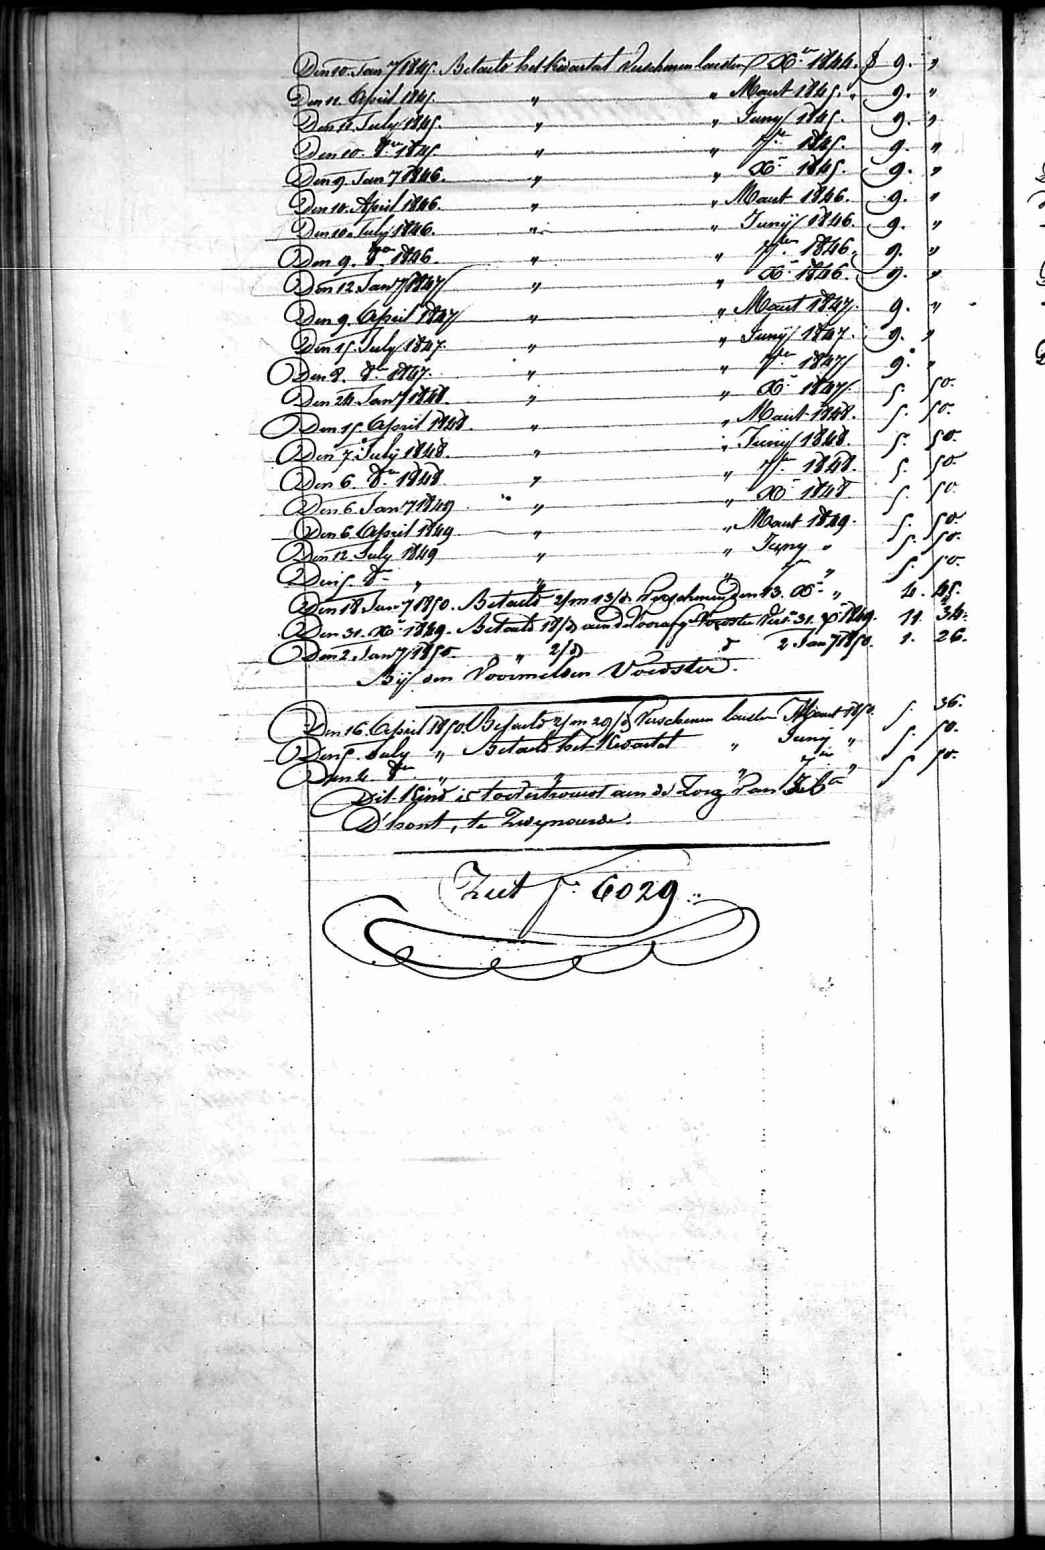 Den 10. Jany 1845. Betaald het Kwartal verschenen laesten Xber 1844. $ 9. "
Den 11. April 1845. " " Maart 1845. " 9. "
Den 11. July 1845. " " Juny 1845. 9. "
Den 10. 8er 1845. " " 7ber 1845. 9. "
Den 9. Jany 1846. " " Xr 1845. 9. "
Den 10. April 1846. " " Maart 1846. 9. "
Den 10. July 1846. " " Junij 1846. 9. "
Den 9. 8ber 1846. " " 7ber 1846. 9. "
Den 12 Jany 1847 " " Xr 1846. 9. "
Den 9. April 1847 " " Maart 1847. 9. "
Den 15. July 1847. " " Junij 1847. 9. "
Den 8. 8er 1847. " " 7ber 1847 9. "
Den 24. Jany 1848. " " Xr 1847. 5. 50.
Den 15. April 1848. " " Maart 1848. 5. 50.
Den 7. July 1848. " " Junij 1848. 5. 50.
Den 6. 8er 1848 " " 7ber 1848. 5. 50
Den 6. Jany 1849 " " Xr 1848 5. 50.
Den 6. April 1849 " " Maart 1849. 5. 50.
Den 12. July 1849 " " Juny " 5. 50.
Den 5. 8er " " " 7r " 5. 50.
Den 18 Jany 1850. Betaald 2/m 13/d verschenen den 13. Xr " 4. 45.
Den 31. Xr 1849. Betaald 18/d aen de Voorafg. Voedster Vers. 31. Xr 1849. 11 34.
Den 2. Jany 1850. " " 2/d " d 2 Jany 1850. 1. 26.
Bij den Voormelden Voedster.
Den 16. April 1850. Betaald 2/m 29/d Verschenen laesten Maart 1850. 5. 36.
Den 5. July " Betaald het Kwartal " Juny " 5. 50.
Den 4. 8er " " " 7er " 5 50.
Dit Kind is toevertrouwt aen de Zorg van
D'hont, te Zwynaerde.
Ziet f° 6029.